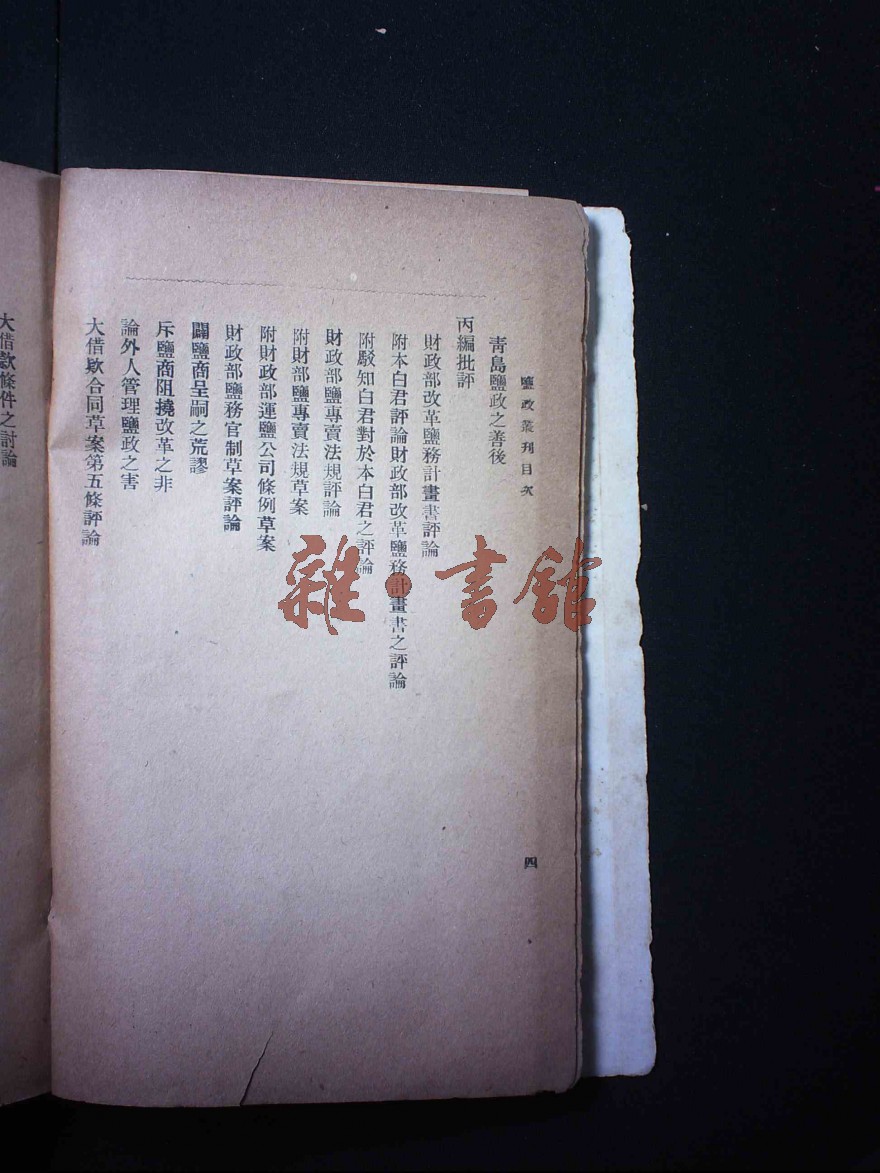 鹽政叢刊目次
青島鹽政之善後
丙編批評
財政部改革鹽務計畫書評論
附本白君評論財政部改革鹽務計畫書之評論
附駁知白君對於本白君之評論
財政部鹽專賣法規評論
附財部鹽專賣法規草案
附財政部運鹽公司條例草案
財政部鹽務官制草案評論
闢鹽商呈嗣之荒謬
斥鹽商阻撓改革之非
論外人管理鹽政之害
大借欵合同草案第五條評論
四
大借欵條件之討論
雜·書館